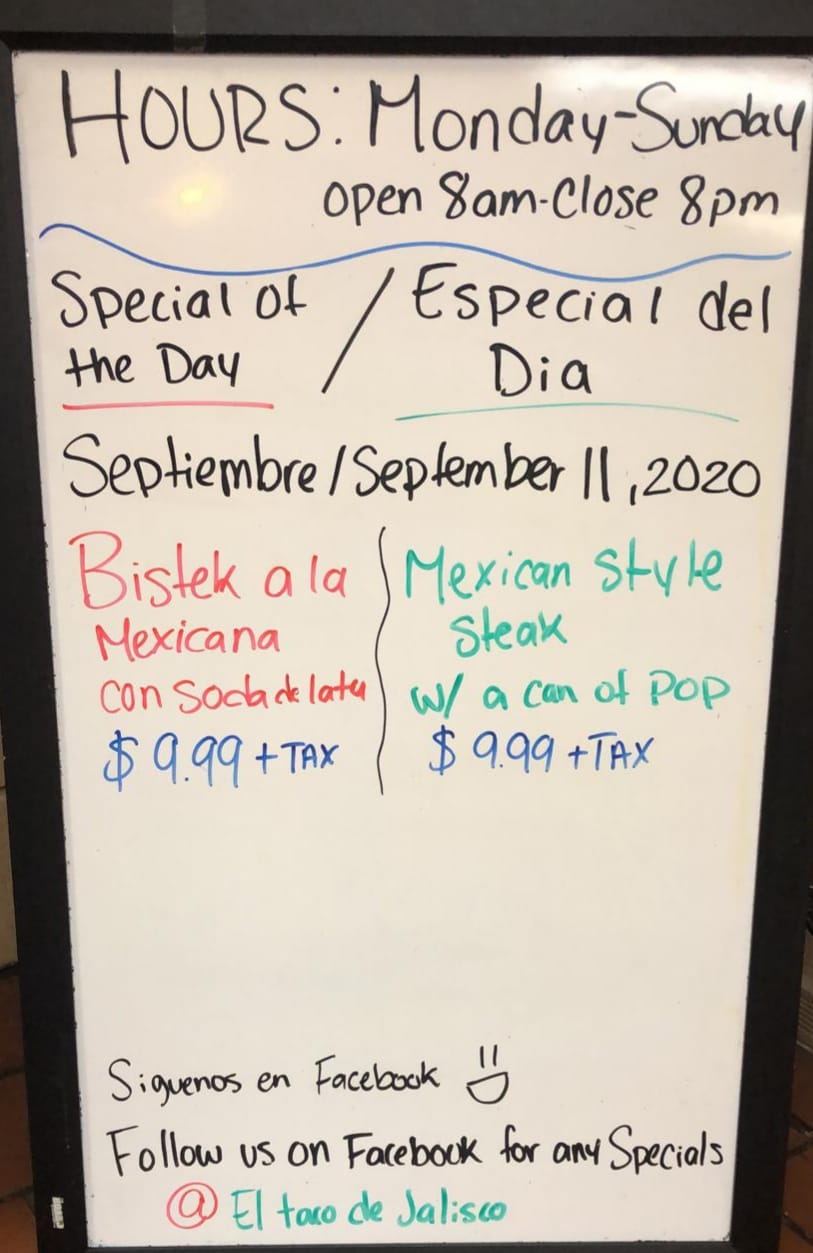 HOURS: Monday-Sunday
open 8am-Close 8pm
Special of the Day / Especial del Dia
Septiembre/September 11, 2020
Bistek a la
Mexicana
con Soda de lata
$ 9.99 + TAX
Mexican Style
Steak
w/ a can of POP
$ 9.99 + TAX
Siguenos en Facebook
Follow us on Facebook for any Specials
@ El taco de Jalisco